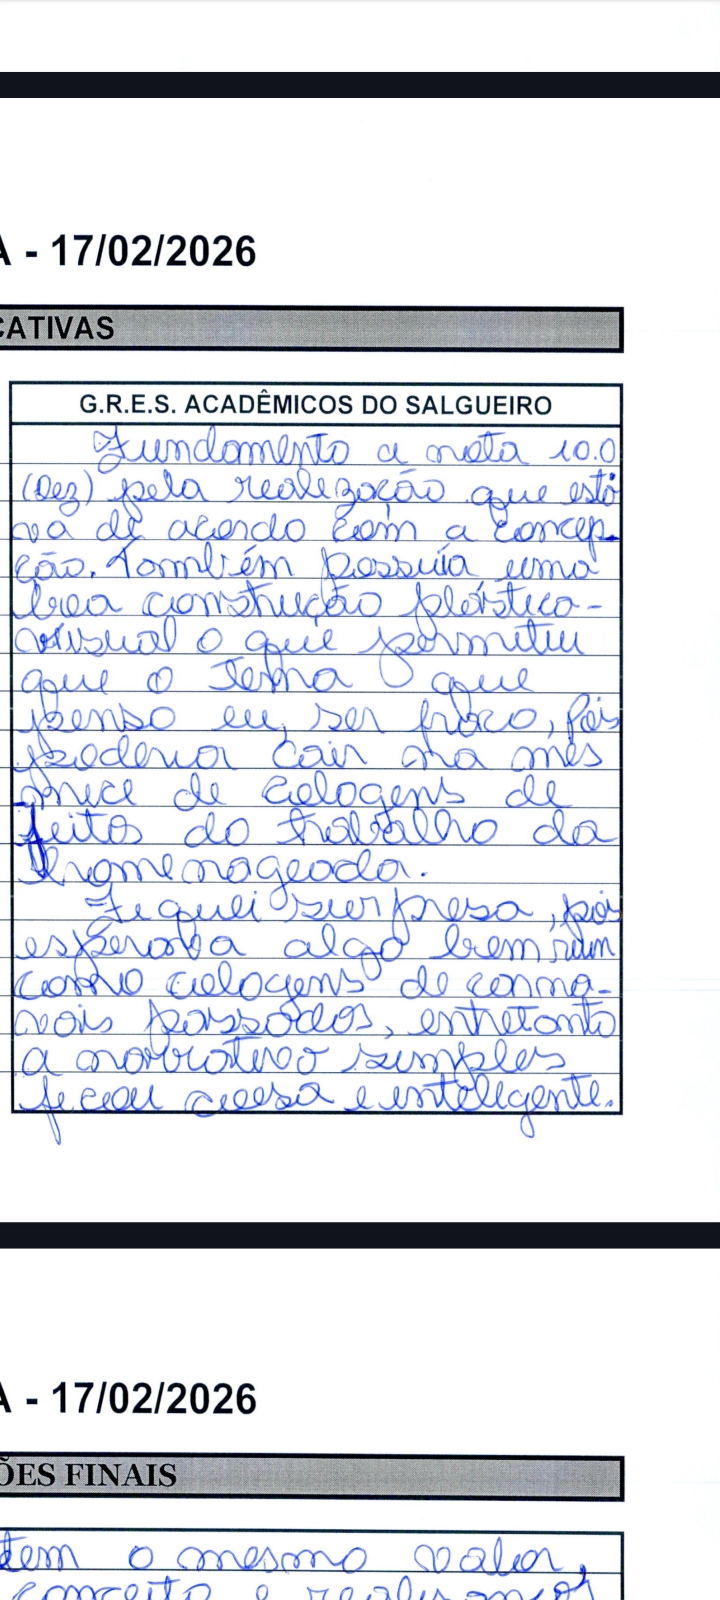 A - 17/02/2026
CATIVAS
G.R.E.S. ACADÊMICOS DO SALGUEIRO
Fundamento a nota 10.0
(Dez) pela realização que está
va de acordo com a concep-
ção. Também possuía uma
boa construção plástico-
visual o que permitiu
que o Tema que
penso eu, ser fraco, pois
poderia cair na mes
mice de colagens de
feitos do trabalho da
homenageada.
Fiquei surpresa, pois
esperava algo bem ruim
como colagens de carna-
vais passados, entretanto
a narrativa simples
ficou coesa e inteligente.
A - 17/02/2026
ÕES FINAIS
tem o mesmo valor,
conceito e realizamos